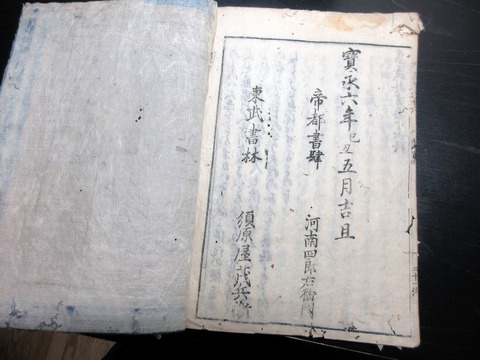 寳永六年己丑五月吉旦
帝都書肆 河南四郎右衛門
東武書林 須原屋茂兵衛